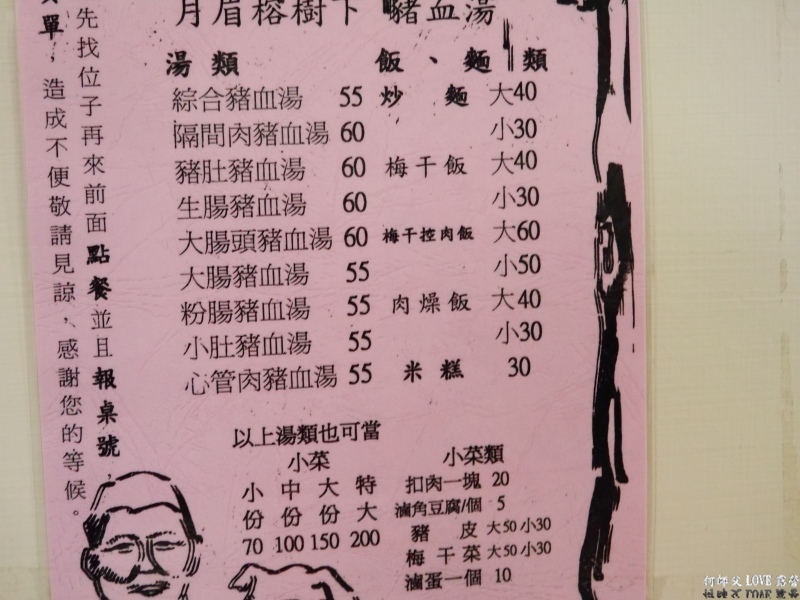 月眉榕樹下 豬血湯
單，造成不便敬請見諒、感謝您的等候。
先找位子再來前面點餐並且報桌號，
湯類
綜合豬血湯 55
隔間肉豬血湯 60
豬肚豬血湯 60
生腸豬血湯 60
大腸頭豬血湯 60
大腸豬血湯 55
粉腸豬血湯 55
小肚豬血湯 55
心管肉豬血湯 55
飯、麵類
炒麵 大40
小30
梅干飯 大40
小30
梅干控肉飯 大60
小50
肉燥飯 大40
小30
米糕 30
以上湯類也可當
小菜
小份 70
中份 100
大份 150
特大 200
小菜類
扣肉一塊 20
滷角豆腐/個 5
豬皮 大50 小30
梅干菜 大50 小30
滷蛋一個 10
何師父 LOVE 露營